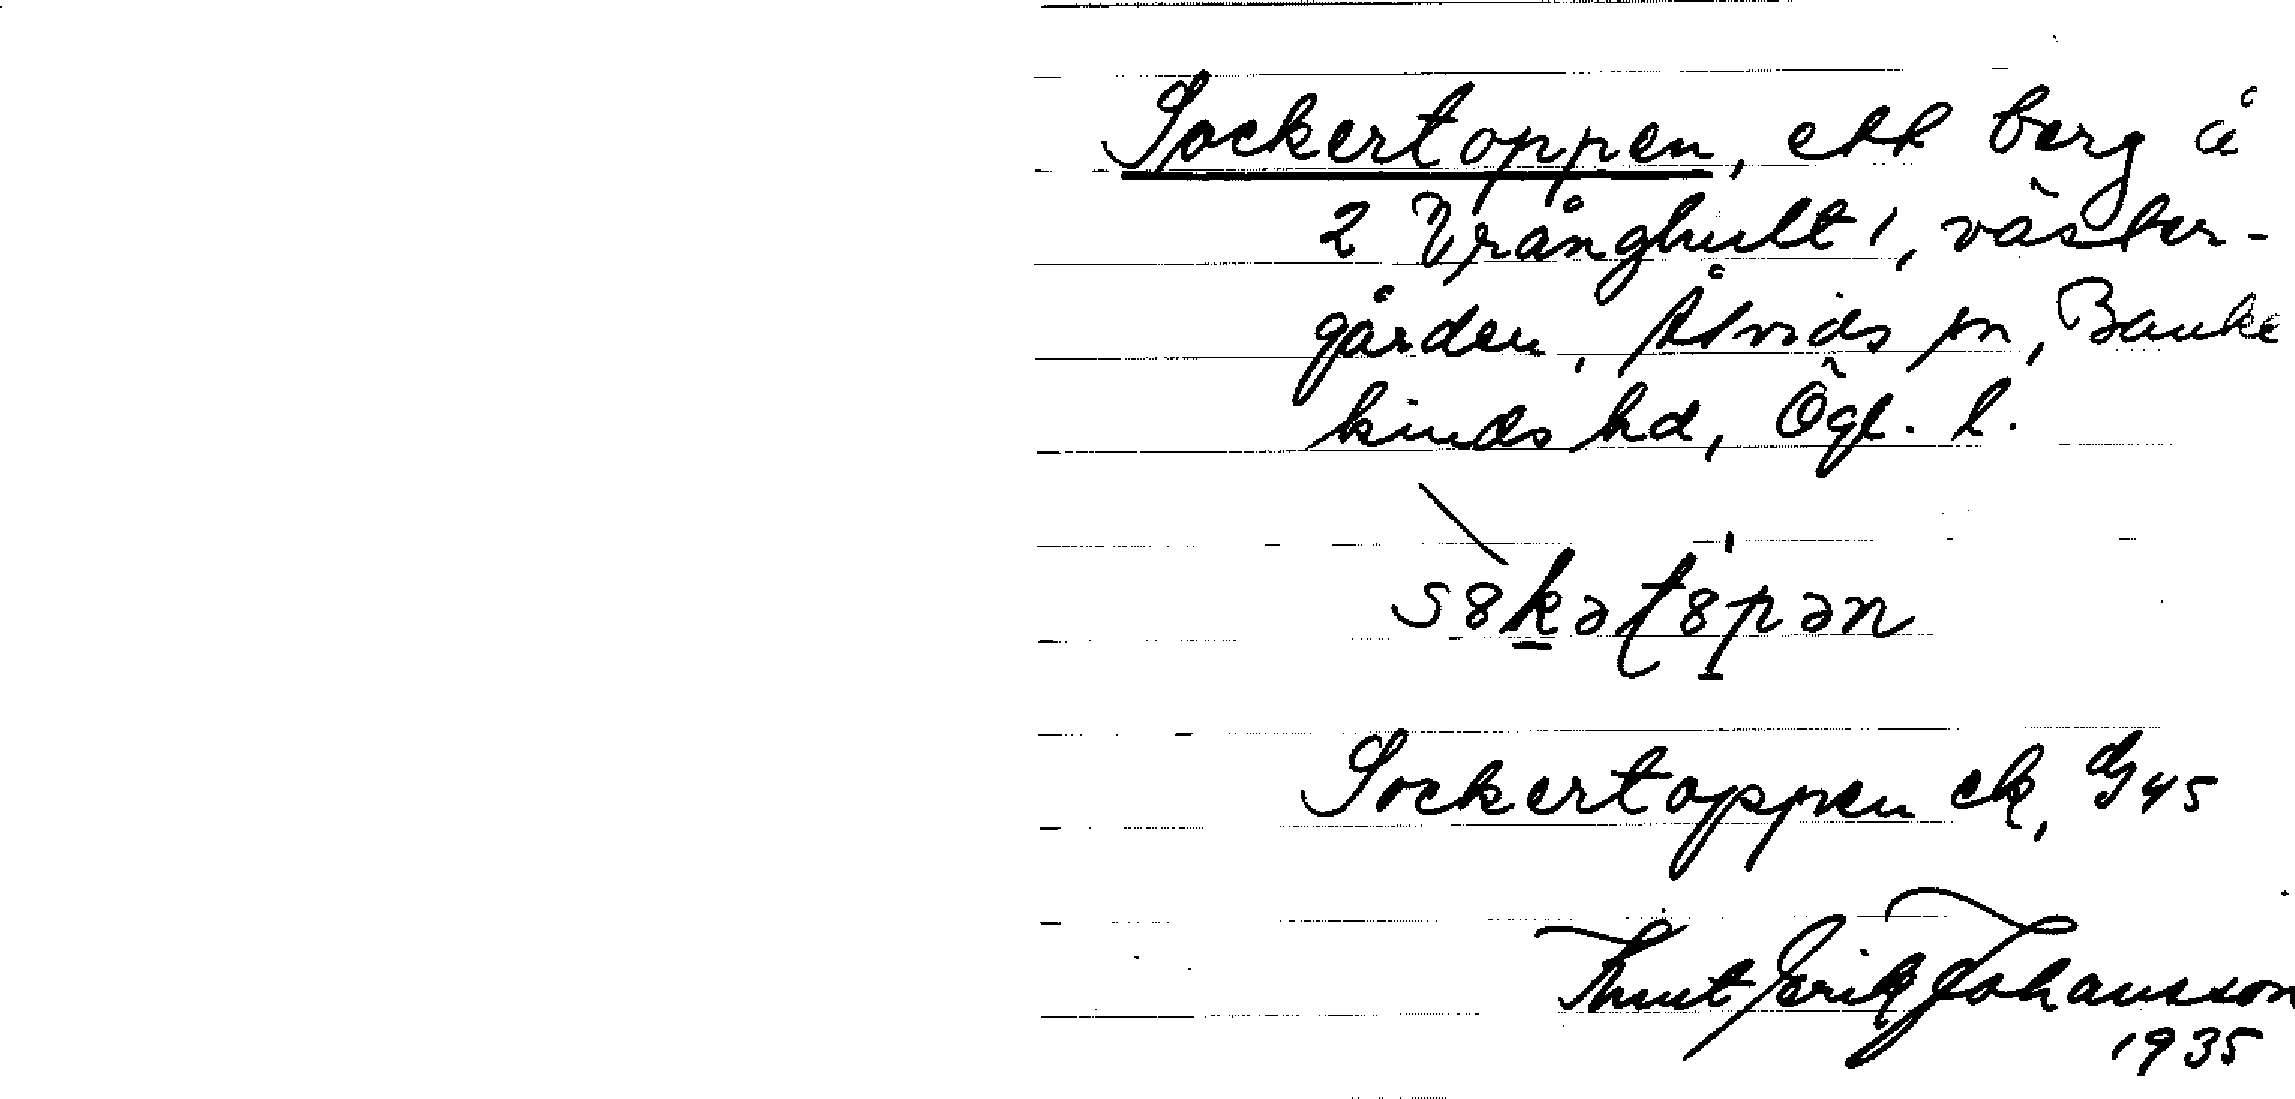 Sockertoppen, ett berg å
2 Vrånghult 1, väster-
gården, Åtvids sn, Banke
kinds hd, Ögl. l.
s8kət8pən
Sockertoppen ek, dy 45
Knut Erik Johansson
1935